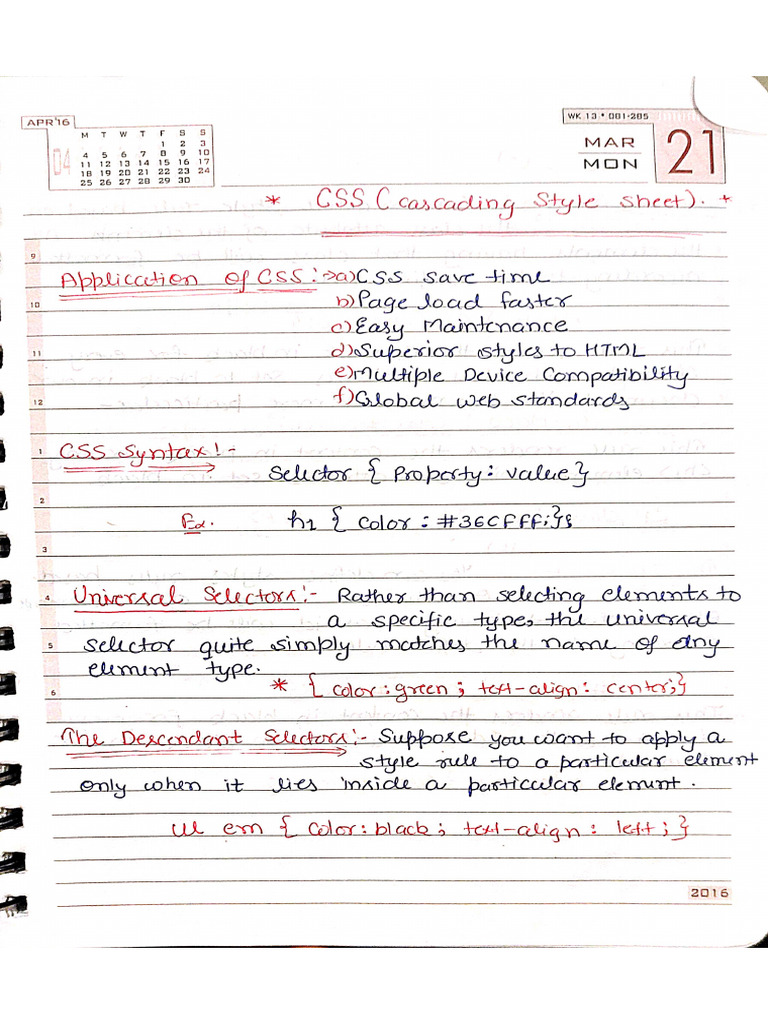 APR'16
WK 13 • 081-285
M T W T F S S
04
1 2 3
4 5 6 7 8 9 10
11 12 13 14 15 16 17
18 19 20 21 22 23 24
25 26 27 28 29 30
MAR
MON
21
* CSS (cascading Style sheet). *
9
Application of CSS :→ a) CSS save time
10 b) Page load faster
c) Easy Maintenance
11 d) Superior styles to HTML
e) Multiple Device Compatibility
12 f) Global web standards
1 CSS Syntax :-
Selector { Property : value }
2
Ex. h1 { color : #36CFFF; }
3
4 Universal Selectors :- Rather than selecting elements to
a specific type, the universal
5 selector quite simply matches the name of any
element type.
6 * { color : green ; text-align : center; }
The Descendant Selectors :- Suppose you want to apply a
style rule to a particular element
only when it lies inside a particular element.
ul em { color : black ; text-align : left ; }
2016